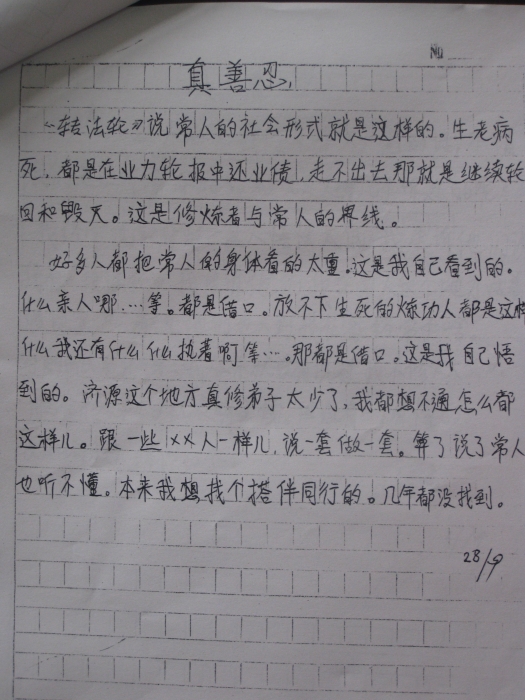 №
真善忍
《转法轮》说常人的社会形式就是这样的。生老病
死，都是在业力轮报中还业债，走不出去那就是继续轮
回和毁灭。这是修炼者与常人的界线。
好多人都把常人的身体看的太重。这是我自己看到的。
什么亲人哪…等。都是借口。放不下生死的炼功人都是这样
什么我还有什么什么执着啊等…。那都是借口。这是我自己悟
到的。济源这个地方真修弟子太少了，我都想不通怎么都
这样儿。跟一些××人一样儿，说一套做一套。算了说了常人
也听不懂。本来我想找个搭伴同行的。几年都没找到。
28/9